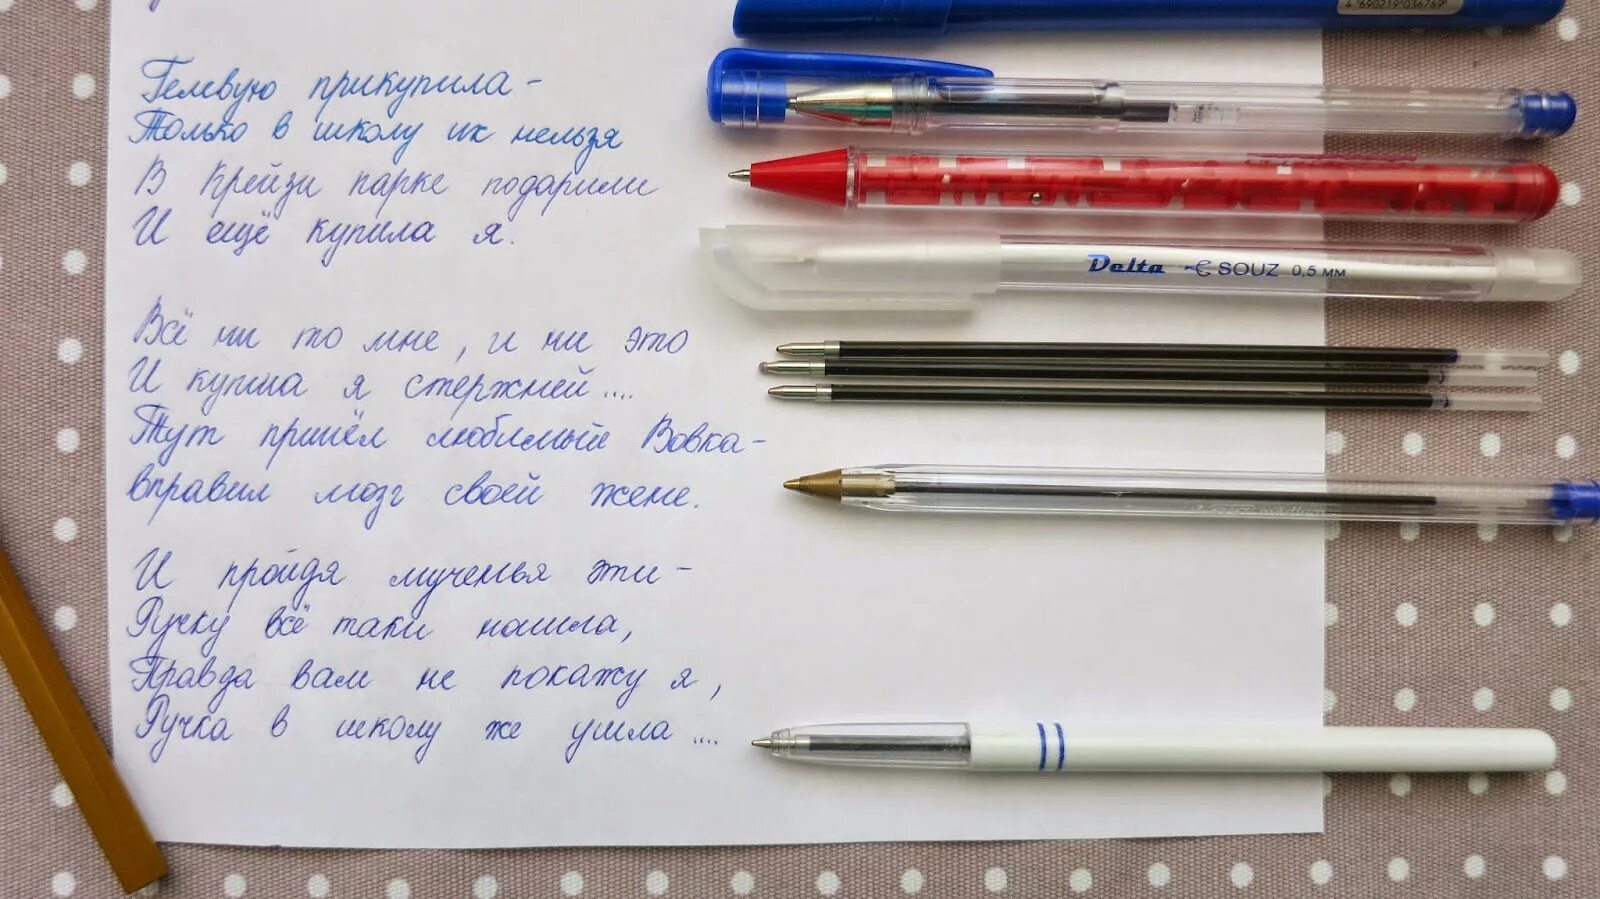 4 690219 036769
Гелевую прикупила -
Только в школу их нельзя
В Крейзи парке подарили
И ещё купила я.
Delta SOUZ 0,5 мм
Всё ни то мне, и ни это
И купила я стержней....
Тут пришёл любимый Вовка -
вправил мозг своей жене.
И пройдя мученья эти -
Ручку всё таки нашла,
Правда вам не покажу я,
Ручка в школу же ушла ....